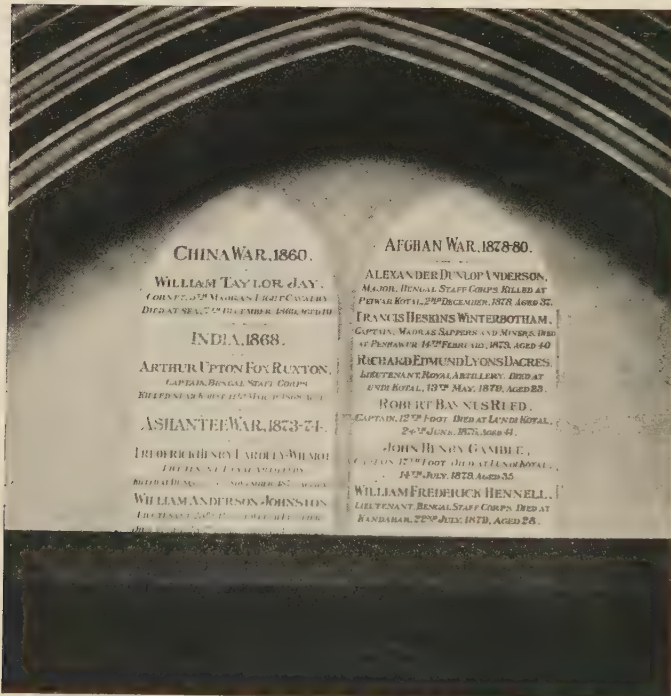 CHINA WAR, 1860.
WILLIAM TAYLOR JAY,
CORNET, 5TH MADRAS LIGHT CAVALRY
DIED AT SEA, 7TH DECEMBER, 1860, AGED 19
INDIA, 1868.
ARTHUR UPTON FOX RUXTON,
CAPTAIN, BENGAL STAFF CORPS
KILLED NEAR
ASHANTEE WAR, 1873-74.
FREDERICK HENRY EARDLEY-WILMOT
LIEUTENANT ROYAL ARTILLERY
KILLED AT NOVEMBER, 1873
WILLIAM ANDERSON JOHNSTON
LIEUTENANT
AFGHAN WAR, 1878-80.
ALEXANDER DUNLOP ANDERSON,
MAJOR, BENGAL STAFF CORPS KILLED AT
PEIWAR KOTAL, 2ND DECEMBER, 1878, AGED 37.
FRANCIS HESKINS WINTERBOTHAM,
CAPTAIN, MADRAS SAPPERS AND MINERS, DIED
AT PESHAWUR 14TH FEBRUARY, 1879, AGED 40
RICHARD EDMUND LYONS DACRES,
LIEUTENANT, ROYAL ARTILLERY, DIED AT
LUNDI KOTAL, 13TH MAY, 1879, AGED 23.
ROBERT REED,
CAPTAIN, 12TH FOOT DIED AT LUNDI KOTAL,
24TH JUNE, 1879, AGED 41.
JOHN HENRY GAMBLE,
CAPTAIN 17TH FOOT DIED AT LUNDI KOTAL,
14TH JULY, 1879, AGED 35
WILLIAM FREDERICK HENNELL,
LIEUTENANT, BENGAL STAFF CORPS DIED AT
KANDAHAR, 22ND JULY, 1879, AGED 28.